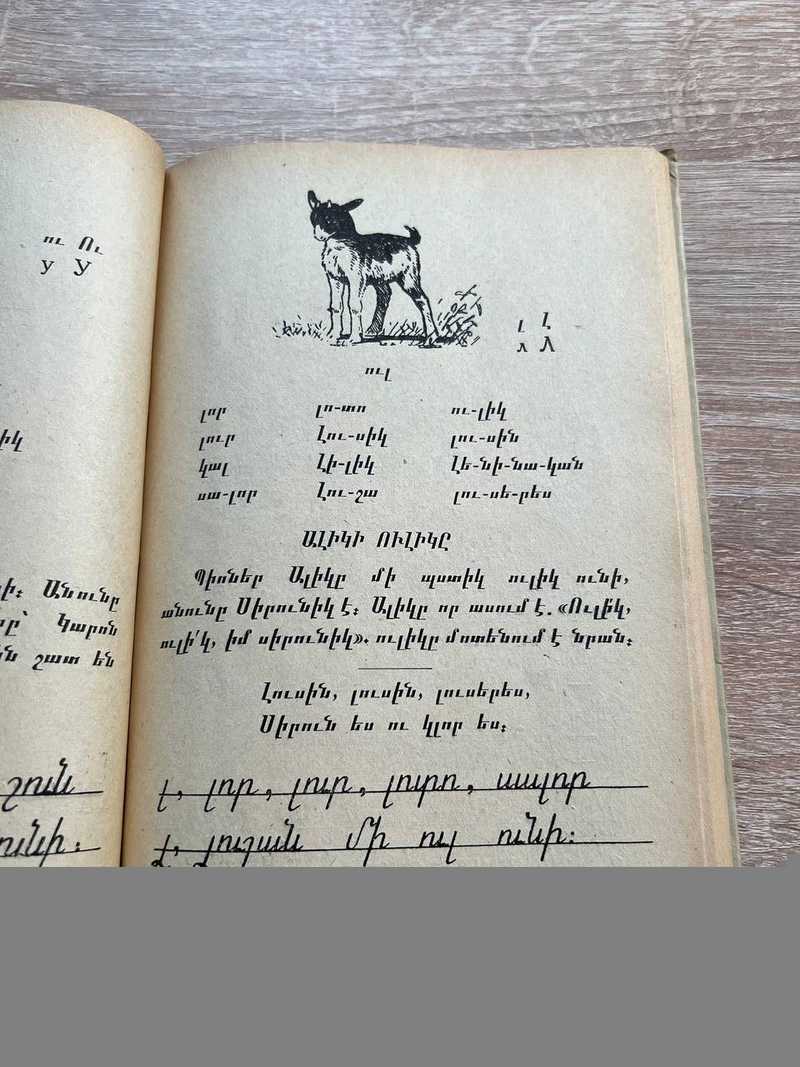 ու Ու
у У
իկ
ի։ Անունը
րը՝ Կարոն
ն շատ են
շուն
ունի։
լ Լ
л Л
ուլ
լոր լո-տո ու-լիկ
լուր Լու-սիկ լու-սին
կալ Լի-լիկ Լե-նի-նա-կան
սա-լոր Լու-շա լու-սե-րես
ԱԼԻԿԻ ՈՒԼԻԿԸ
Պիոներ Ալիկը մի պստիկ ուլիկ ունի,
անունը Սիրունիկ է։ Ալիկը որ ասում է. «Ուլի՛կ,
ուլի՛կ, իմ սիրունիկ». ուլիկը մոտենում է նրան։
Լուսին, լուսին, լուսերես,
Սիրուն ես ու կլոր ես։
լ, լոր, լուր, լոտո, սալոր
Լ, Լուշան մի ուլ ունի։